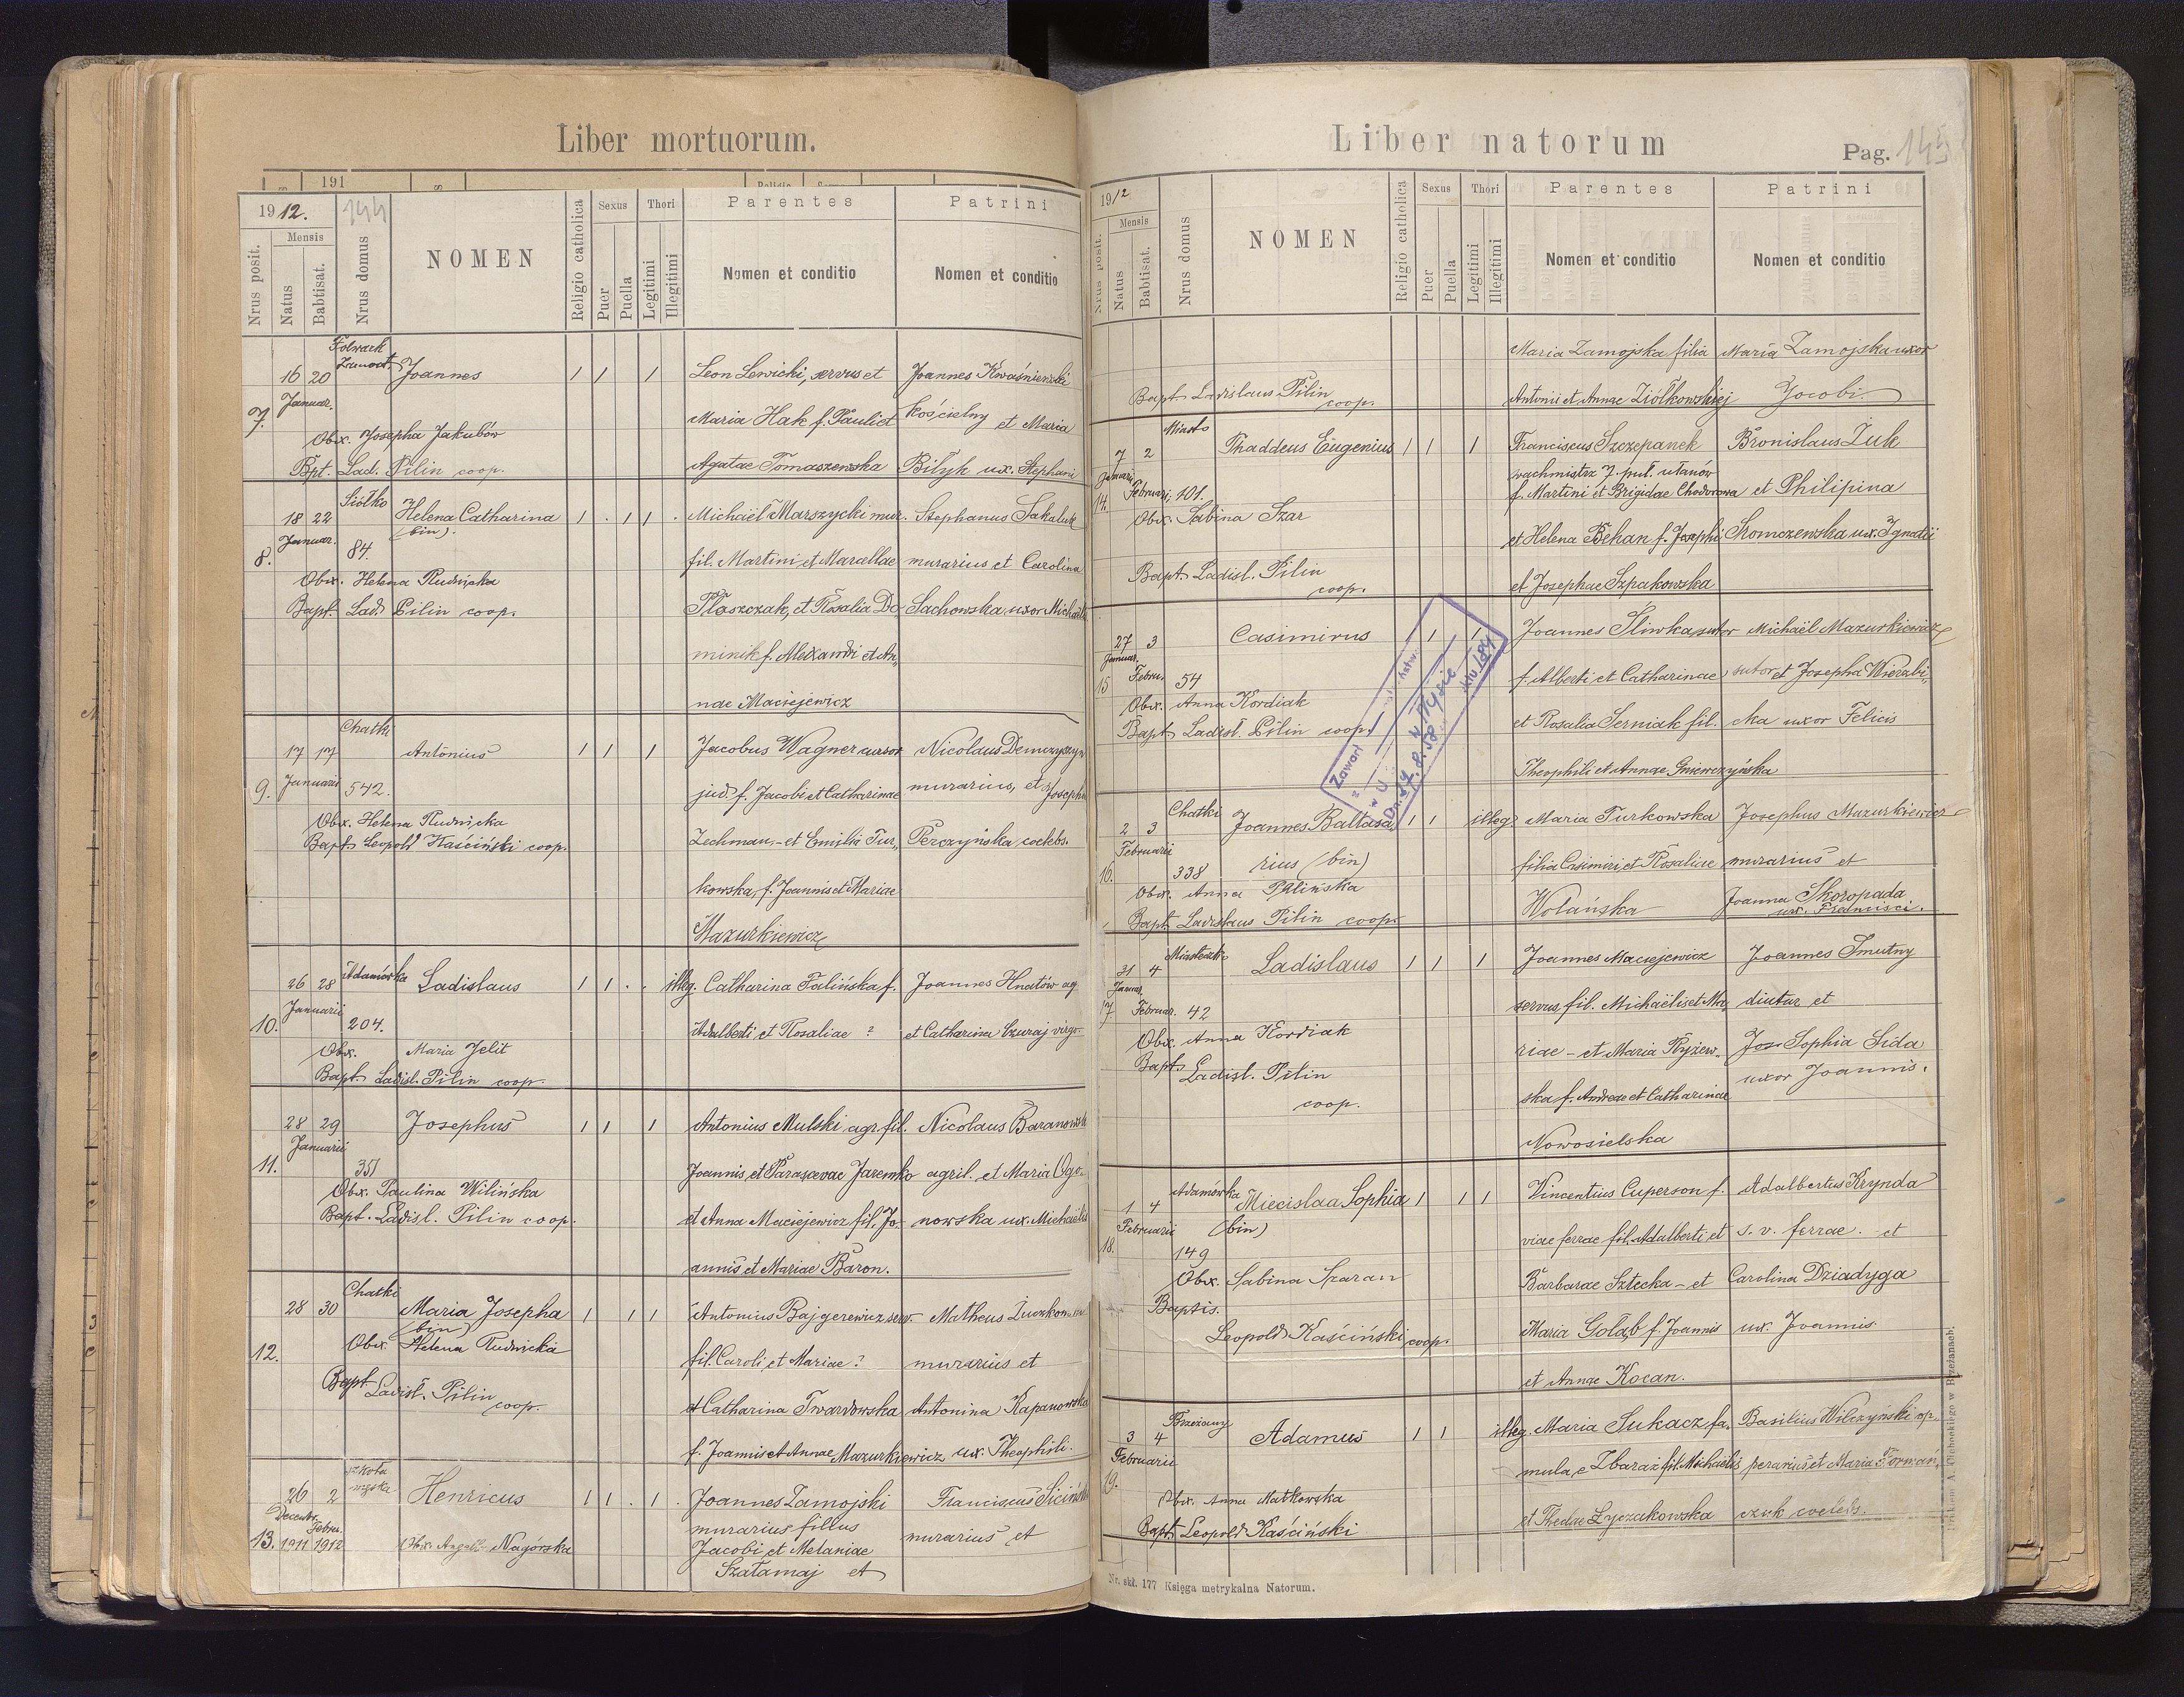 Liber mortuorum.
191
1912.
144
Nrus posit.
Mensis
Natus
Babtisat.
Nrus domus
NOMEN
Religio catholica
Sexus
Puer
Puella
Thori
Legitimi
Illegitimi
Parentes
Nomen et conditio
Patrini
Nomen et conditio
7.
16 20
Januar.
Folwark
Joannes
1 1 1
Obx. Josepha Jakubów
Bpt. Lad. Pilin coop.
Leon Lewicki, servus et
Maria Hak f. Pauli et
Agatae Tomaszewska
Joannes Kwaśniewski
kościelny et Maria
Bilyk ux. Stephani
8.
18 22
Januar.
Siółko
84.
Helena Catharina
(bin).
1 . 1 1 .
Obx. Helena Rudnicka
Bapt. Lad. Pilin coop.
Michaël Marszycki mur.
fil. Martini et Marcellae
Płaszczak, et Rosalia Do-
minik f. Alexandri et An-
nae Maciejewicz
Stephanus Sakaluk
murarius et Carolina
Sachowska uxor Michaëlis
9.
17 17
Januarii
Chatki
542.
Antonius
1 1 1
Obx. Helena Rudnicka
Bapt. Leopold Kaściński coop.
Jacobus Wagner cursor
jud. f. Jacobi et Catharinae
Zechman - et Emilia Tur-
kowska, f. Joannis et Mariae
Mazurkiewicz
Nicolaus Demczyszyn
murarius, et Josepha
Perczyńska coelebs.
10.
26 28
Januarii
Adamówka
204.
Ladislaus
1 1 . . illeg.
Obx. Maria Jelit
Bapt. Ladisl. Pilin coop.
Catharina Falińska f.
Adalberti et Rosaliae ?
Joannes Hnatów ag.
et Catharina Czuraj virgo
11.
28 29
Januarii
351
Josephus
1 1 1
Obx. Paulina Wilińska
Bapt. Ladisl. Pilin coop.
Antonius Mulski agr. fil.
Joannis et Parascevae Jaremko
et Anna Maciejewicz fil. Jo-
annis et Mariae Baron.
Nicolaus Baranowski
agril. et Maria Ogo-
nowska ux. Michaëlis
12.
28 30
Chatki
Maria Josepha
(bin)
1 1 1
Obx. Helena Rudnicka
Bapt. Ladisl. Pilin
coop.
Antonius Bajgerewicz serv.
fil. Caroli et Mariae ?
et Catharina Twardowska
f. Joannis et Annae Mazurkiewicz
Matheus
murarius et
Antonina Kapanowska
ux. Theophili.
13.
26 2
Decembr. Febru.
1911 1912
szkoła
Henricus
1 1 . 1 .
Obx. Nagórska
Joannes Zamojski
murarius filius
Jacobi et Melaniae
Szałamaj et
Franciscus Siciński
murarius et
Liber natorum
Pag. 145
1912
Nrus posit.
Mensis
Natus
Babtisat.
Nrus domus
NOMEN
Religio catholica
Sexus
Puer
Puella
Thori
Legitimi
Illegitimi
Parentes
Nomen et conditio
Patrini
Nomen et conditio
Bapt. Ladislaus Pilin
coop.
Maria Zamojska filia
Antonii et Annae Ziółkowskiej
Maria Zamojska uxor
Jacobi.
14.
7 2
Januarii Februarii
Miasto
101.
Thaddeus Eugenius
1 1 1
Obx. Sabina Szar
Bapt. Ladisl. Pilin
coop.
Franciscus Szczepanek
wachmistrz 7. puł. ułanów
f. Martini et Brigidae Chodorowa
et Helena Behan f. Josephi
et Josephae Szpakowska
Bronislaus Żuk
et Philipina
Skomczewska ux. Ignatii
15
27 3
Januar. Febru.
54
Casimirus
1 1
Obx. Anna Kordiak
Bapt. Ladisl. Pilin coop.
Joannes Śliwka sutor
f. Alberti et Catharinae
et Rosalia Serniak fil.
Theophili et Annae Gniewczyńska
Michaël Mazurkiewicz
sutor et Josepha Wierzbi-
cka uxor Felicis
Zawarł
16.
2 3
Februarii
Chatki
338
Joannes Baltasa-
rius (bin)
1 1 illeg.
Obx. Anna Palińska
Bapt. Ladislaus Pilin coop.
Maria Turkowska
filia Casimiri et Rosaliae
Wolańska
Josephus Mazurkiewicz
murarius et
Joanna Skoropada
ux. Francisci.
17
31 4
Januar. Februar.
Miasteczko
42
Ladislaus
1 1 1
Obx. Anna Kordiak
Bapt. Ladisl. Pilin
coop.
Joannes Maciejewicz
servus, fil. Michaëlis et Ma-
riae - et Maria Ryżew-
ska f. Andreae et Catharinae
Nowosielska
Joannes Smutny
et
Sophia Sida
uxor Joannis.
18.
1 4
Februarii
Adamówka
149
Miecislaa Sophia
(bin)
1 1 1
Obx. Sabina Szaran
Baptis.
Leopold Kaściński coop.
Vincentius Cuperson f.
viae ferrae fil. Adalberti et
Barbarae Sztecka - et
Maria Gołąb f. Joannis
et Annae Kocan.
Adalbertus Krynda
s. v. ferrae. et
Carolina Dziadyga
ux. Joannis.
19.
3 4
Februarii
Brzeżany
Adamus
1 1 illeg.
Obx. Anna Matkowska
Bapt. Leopold Kaściński
Maria Sukacz fa-
mula e Zbaraż fil. Michaëlis
et Theclae Łyczakowska
Basilius Wilczyński op-
perarius et Maria Forman-
czuk coelebs.
Nr. skł. 177 Księga metrykalna Natorum.